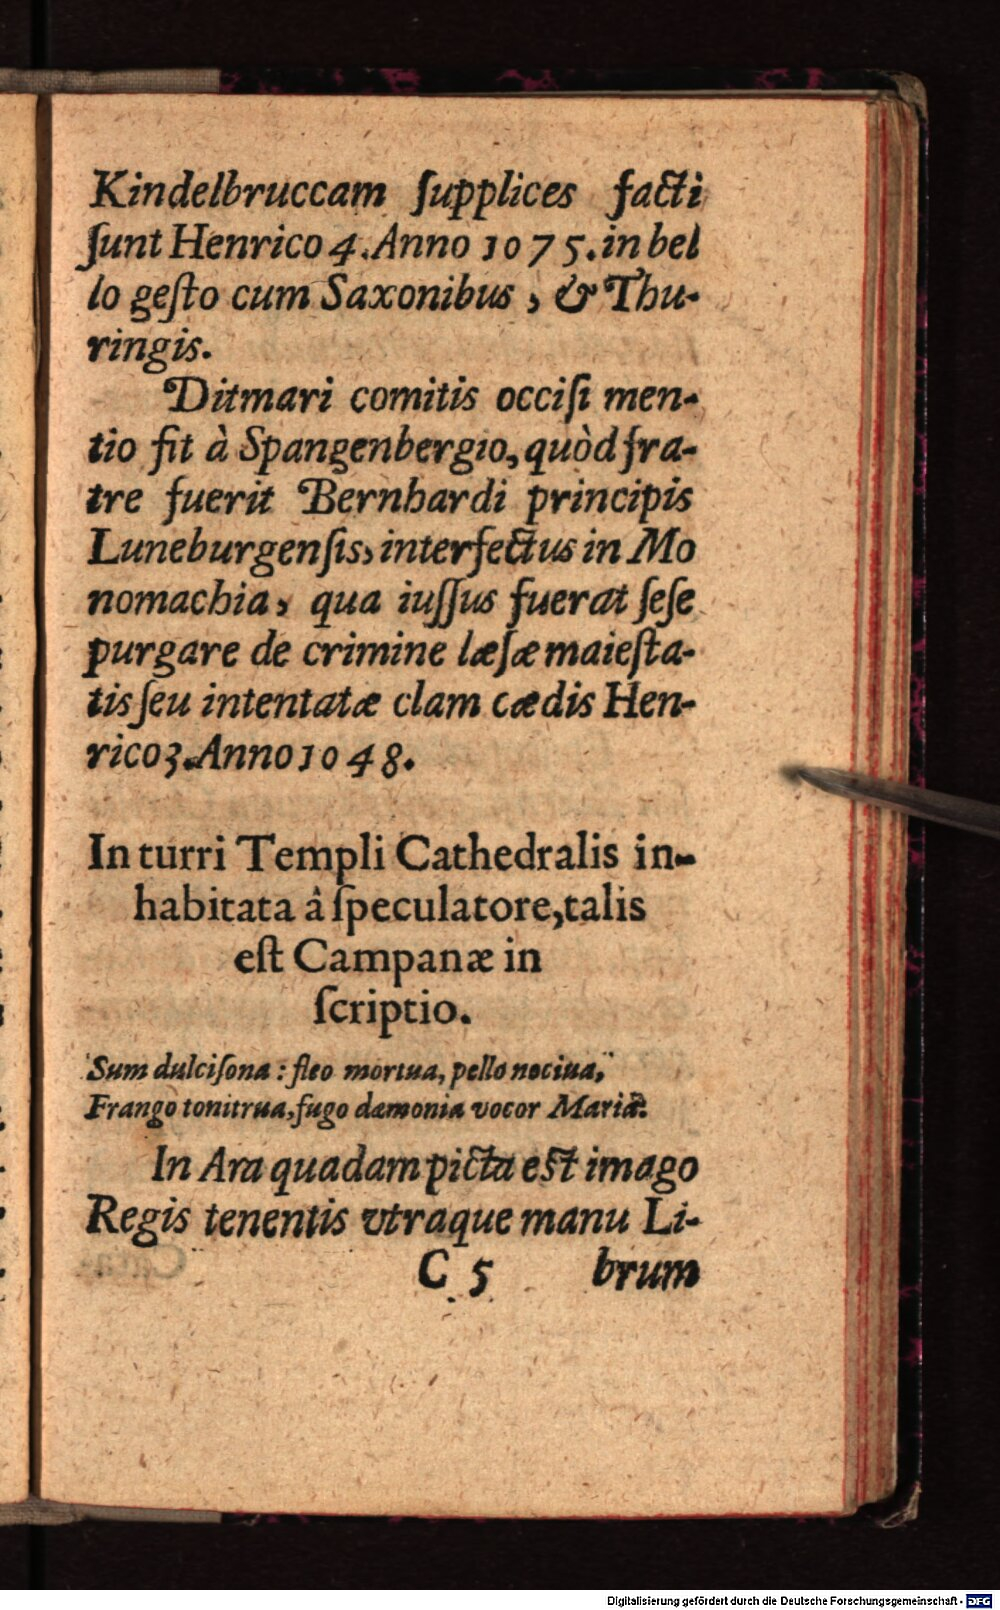 Kindelbruccam ſupplices facti
ſunt Henrico 4. Anno 1075. in bel
lo geſto cum Saxonibus, & Thu-
ringis.
Ditmari comitis occiſi men-
tio fit à Spangenbergio, quòd fra-
tre fuerit Bernhardi principis
Luneburgenſis, interfectus in Mo
nomachia, qua iuſſus fuerat ſeſe
purgare de crimine læſæ maieſta-
tis ſeu intentatæ clam cædis Hen-
rico 3. Anno 1048.
In turri Templi Cathedralis in-
habitata â ſpeculatore, talis
eſt Campanæ in
ſcriptio.
Sum dulciſona: fleo mortua, pello nociua,
Frango tonitrua, fugo dæmonia vocor Maria.
In Ara quadam picta eſt imago
Regis tenentis vtraque manu Li-
C 5 brum
Digitalisierung gefördert durch die Deutsche Forschungsgemeinschaft - DFG